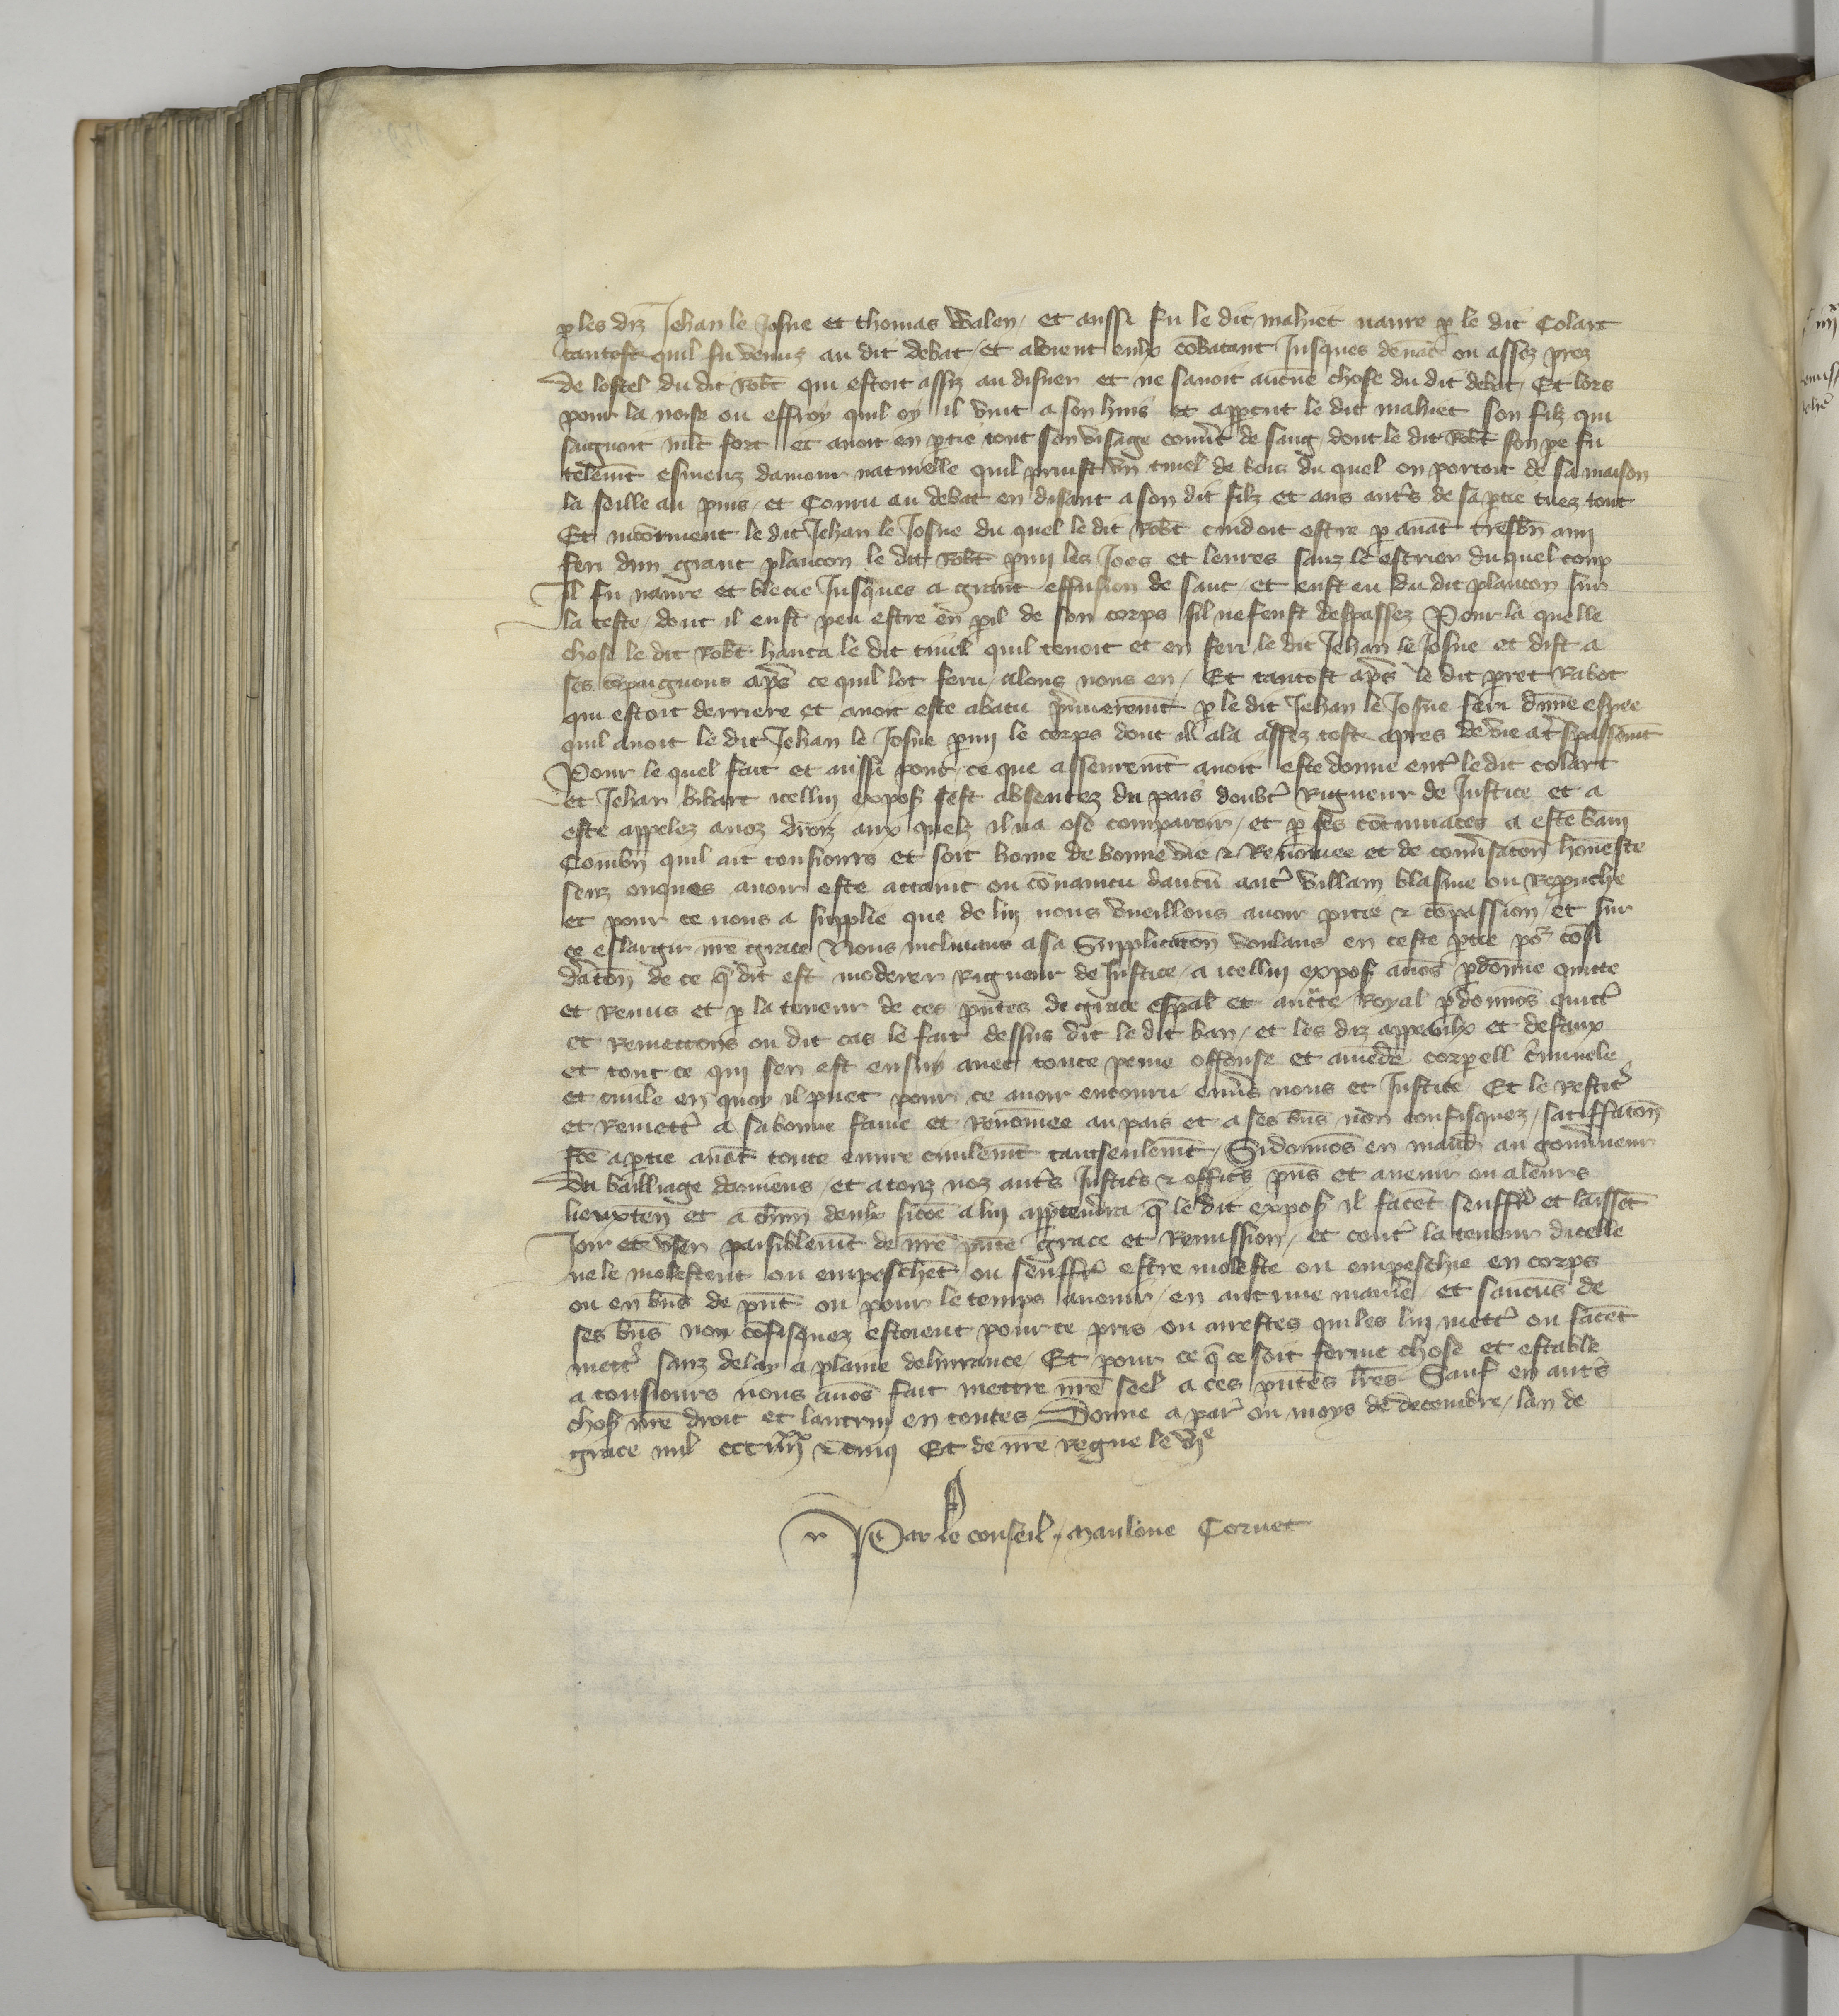 p les diz Jehan le Josne et thomas Walen / et aussi fu le dit mahiet naure p le dit Colart
tantost quil fu venuz au dit debat / et aloient eulx cōbatant Jusques deuāt ou assez prez
de lostel du dit Robt qui estoit assiz au disner et ne sauoit aucune chose du dit debat / Et lors
pour la noise ou effroy quil oy il vint a son huis et apperçut le dit mahiet son filz qui
saignoit mlt fort et auoit en ptie tout son visage couuert de sang / dont le dit Robt son pe fu
telemēt esmeuz damour naturelle quil prinst vn tinel de bois du quel on portoit de sa maison
la seille au puis / et Couru au debat en disant a son dit filz et aus autres de sa ptie tuez tout
Et incōtinent le dit Jehan le Josne du quel le dit Robt cuidoit estre p auāt tresbn ami
feri dun grant plancon le dit Robt pmi les Joes et leures sanz le escrier du quel coup
Il fu naure et blecie Jusques a grant effusion de sanc / et eust eu du dit plancon sur
la teste / dont il eust peu estre en pil de son corps sil ne feust despassez Pour la quelle
chose le dit Robt hauca le dit tinel quil tenoit et en feri le dit Jehan le Josne et dist a
ses cōpaignons aps ce quil lot feru / alons nous en / Et tantost aps le dit pret Rabot
qui estoit derriere et auoit este abatu premieremt p le dit Jehan le Josne feri dune espee
quil auoit le dit Jehan le Josne pmi le corps dont il ala assez tost apres de vie a trespassemt
Pour le quel fait et aussi pour ce que asseuremt auoit este donne entre le dit colart
et Jehan bikart icellui expos sest absentez du pais doubtr Rigueur de Justice et a
este appelez a noz droiz aux quelz il na ose comparoir / et p ses cōtumaces a este bani
Combn quil ait tousiours et soit home de bonne vie & Renōmee et de conuersatōn honneste
senz onques auoir este attaint ou cōuaincu daucū autr villain blasme ou Reprouche
et pour ce nous a supplie que de lui nous vueillons auoir pitie & cōpassion / et sur
ce eslargir nre grace Nous inclinans a sa Supplicatōn voulans en ceste ptie por cōsi
deratōn de ce q dit est moderer Rigueur de Justice / a icellui expos auōs pdonne quitte
et Remis et p la teneur de ces pntes de grace espāl et aucte Royal pdonnōs quittr
et Remettons ou dit cas le fait dessus dit le dit ban / et les diz appeaulx et defaux
et tout ce qui sen est ensuy auec toute peine offense et amēde corporell criminele
et ciuile en quoy il puet pour ce auoir encouru enuers nous et Justice Et le Restitr
et Remettr a sa bonne fame et Renōmee au pais et a ses bns non confisquez / satisffatōn
fte a ptie auāt toute euure ciuilemt tantseulemt / Si donnōs en mand au gouuerneur
du bailliage damiens / et a touz noz autrs Justicrs & officrs pns et auenir ou a leurs
lieuxten et a chun deulx sicōe a lui appertendra q le dit expos il facēt seuffrt et laissēt
Joir et vser paisiblemt de nre pnte grace et Remission / et contr la teneur dicelle
ne le molestent ou empeschēt ou seuffrt estre moleste ou empeschie en corps
ou en bns de pnt ou pour le temps auenir / en aucune maniere / et saucuns de
ses bns non cōfisquez estoient pour ce pris ou arrestes qui les lui mettr ou facēt
mettr sanz delay a plaine deliurance / Et pour ce q ce soit ferme chose et estable
a tousiours nous auōs fait mettre nre seel a ces pntes lres Sauf en autrs
chos nre droit et lautruy en toutes / Donne a par ou moys de decembre / lan de
grace mil ccc iiiixx & cinq Et de nre Regne le vie
Par le conseil / Maulone Cornet